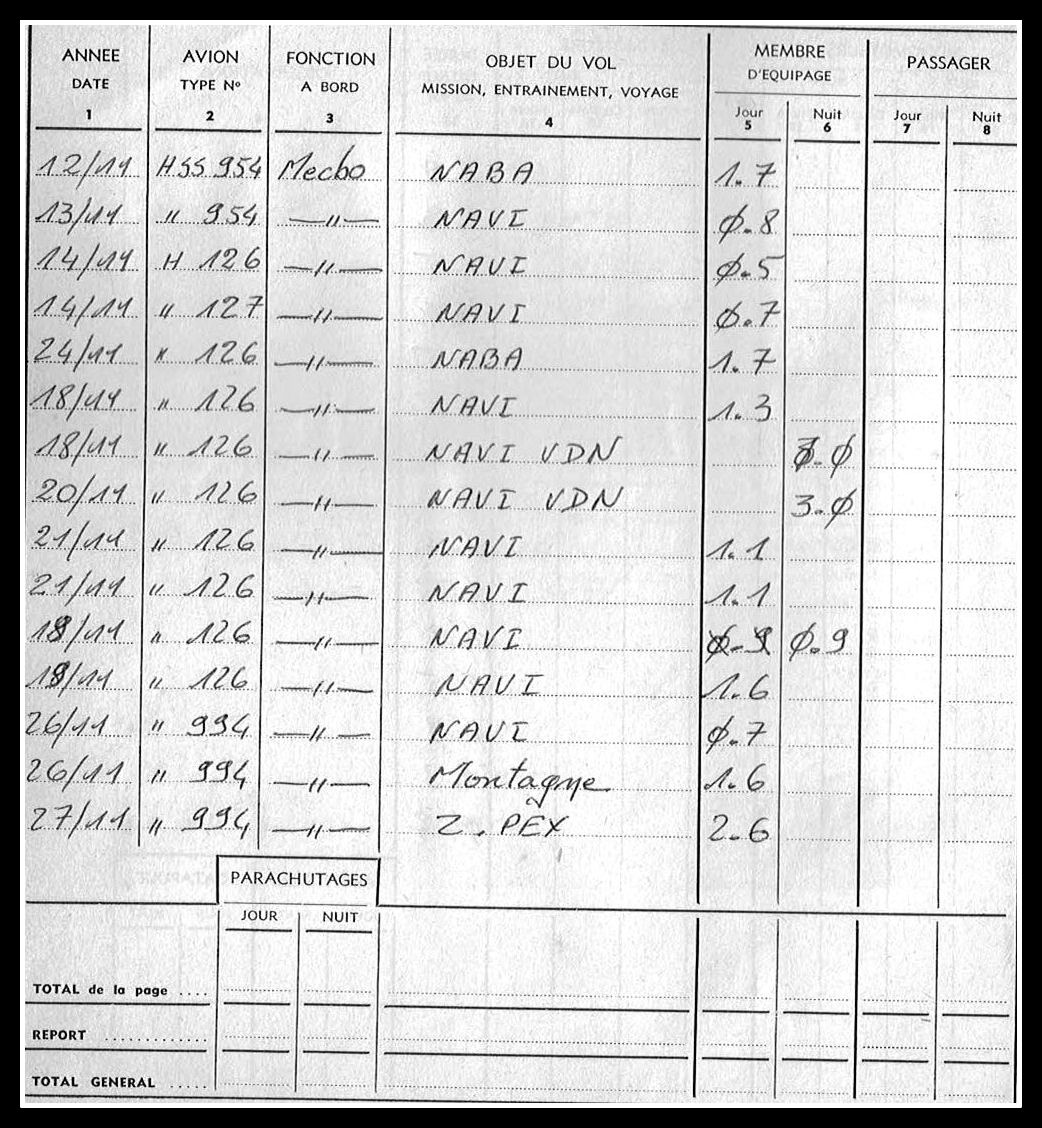 ANNEE AVION FONCTION OBJET DU VOL MEMBRE PASSAGER
DATE TYPE No A BORD MISSION, ENTRAINEMENT, VOYAGE D'EQUIPAGE
Jour Nuit Jour Nuit
1 2 3 4 5 6 7 8
12/11 HSS 954 Mecbo NABA 1.7
13/11 " 954 —"— NAVI Ø.8
14/11 H 126 —"— NAVI Ø.5
14/11 " 127 —"— NAVI Ø.7
24/11 " 126 —"— NABA 1.7
18/11 " 126 —"— NAVI 1.3
18/11 " 126 —"— NAVI VDN .Ø
20/11 " 126 —"— NAVI VDN 3.Ø
21/11 " 126 —"— NAVI 1.1
21/11 " 126 —"— NAVI 1.1
/11 " 126 —"— NAVI Ø.9 Ø.9
/11 " 126 —"— NAVI 1.6
26/11 " 994 —"— NAVI Ø.7
26/11 " 994 —"— Montagne 1.6
27/11 " 994 —"— Z. PEX 2.6
PARACHUTAGES
JOUR NUIT
TOTAL de la page ....
REPORT ............
TOTAL GENERAL .....